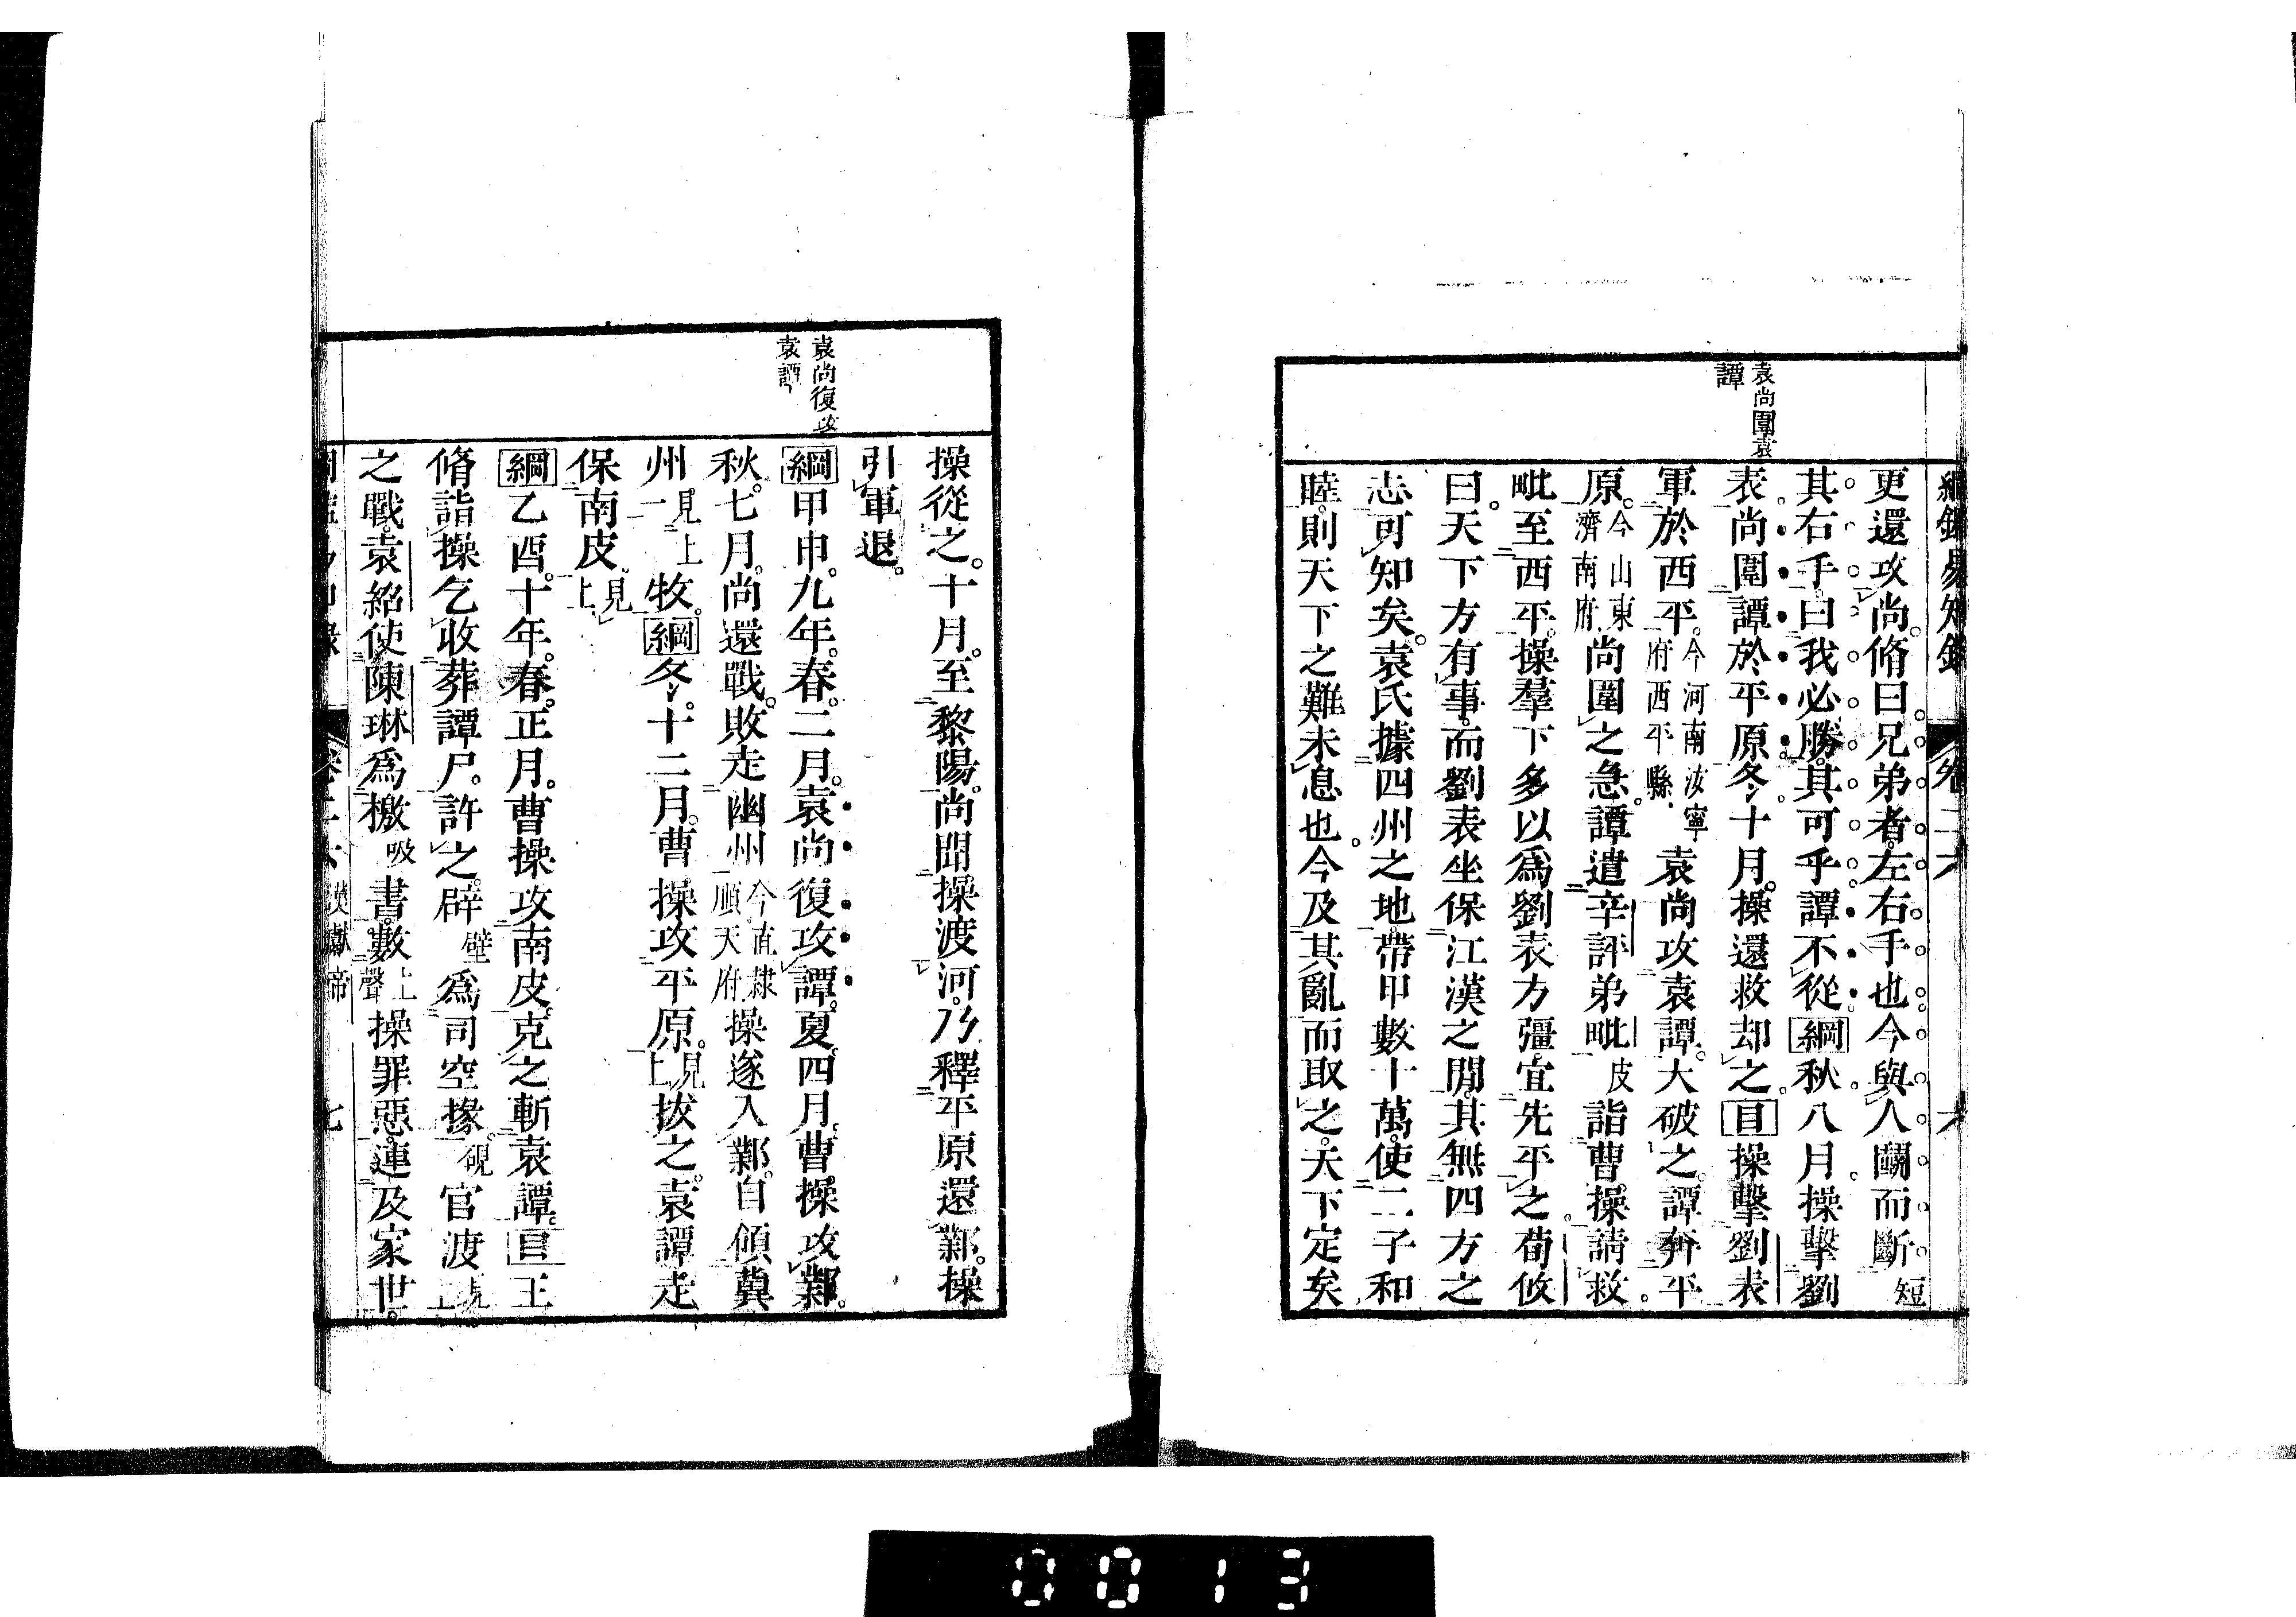 袁尚圍袁
譚
更還攻尚。脩曰。兄弟者。左右手也。今與人鬭而斷短
其右手。曰我必勝。其可乎。譚不從。綱秋八月。操擊劉
表。尚圍譚於平原。冬。十月。操還救却之。目操擊劉表
軍於西平。今河南汝寧府西平縣袁尚攻袁譚。大破之。譚奔平
原。今山東濟南府尚圍之急。譚遣辛評弟毗皮詣曹操請救。
毗至西平。操羣下多以爲劉表方彊。宜先平之。荀攸
曰。天下方有事。而劉表坐保江漢之閒。其無四方之
志可知矣。袁氏據四州之地。帶甲數十萬。使二子和
睦。則天下之難未息也。今及其亂而取之。天下定矣
袁尚復攻
袁譚
操從之。十月。至黎陽。尚聞操渡河。乃釋平原還鄴。操
引軍退。
綱甲申。九年。春。二月。袁尚復攻譚。夏。四月。曹操攻鄴。
秋。七月。尚還戰。敗走幽州今直隸順天府操遂入鄴。自領冀
州。見上一牧。綱冬。十二月。曹操攻平原。見上拔之。袁譚走
保南皮見上
綱乙酉。十年。春。正月。曹操攻南皮。克之。斬袁譚。目王
脩詣操乞收葬譚尸。許之。辟璧爲司空掾。硯官渡見上
之戰。袁紹使陳琳爲檄吸書。數上聲操罪惡。連及家世。
漢獻帝 七
0013